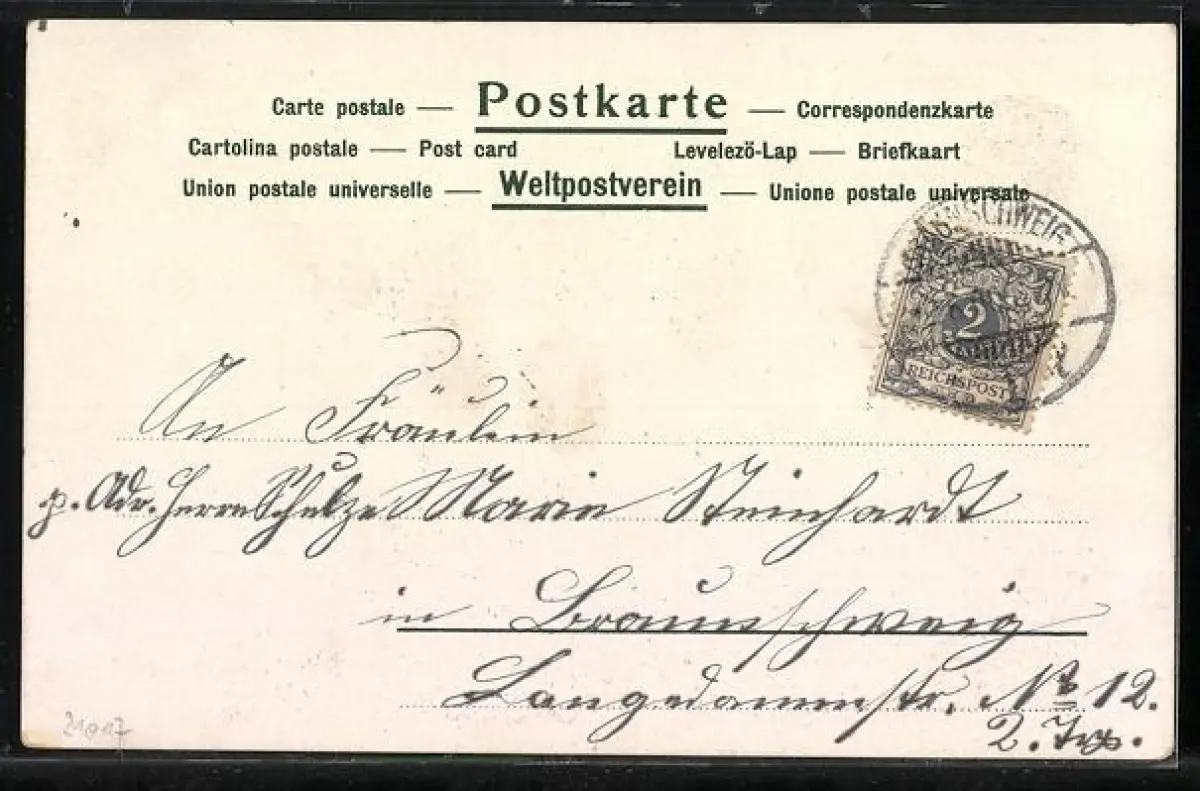 Carte postale — Postkarte — Correspondenzkarte
Cartolina postale — Post card Levelezö-Lap — Briefkaart
Union postale universelle — Weltpostverein — Unione postale universale
BRAUNSCHWEIG
2
REICHSPOST
An Fräulein
p. Adr. Herrn Schulze Marie Steinhardt
in Braunschweig
Langedammstr. No 12.
2. Trp.
21017